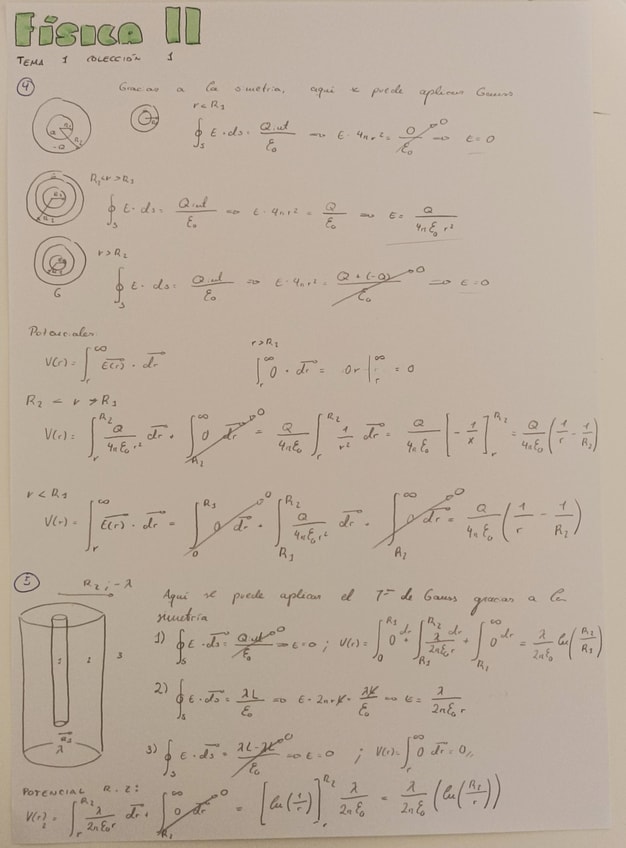 Física II
TEMA 1 COLECCIÓN 1
4 Gracias a la simetria, aqui se puede aplicar Gauss
r < R₁
∮ₛ E · ds = Q int / ε₀ ⇒ E · 4π r² = 0 / ε₀ 0 ⇒ E = 0
-Q
∮ₛ E · ds = Q int / ε₀ ⇒ E · 4π r² = Q / ε₀ ⇒ E = Q / 4π ε₀ r²
r > R₂
∮ₛ E · ds = Q int / ε₀ ⇒ E · 4π r² = Q + (-Q) / ε₀ 0 ⇒ E = 0
G
Potenciales:
r > R₂
V(r) = ∫ᵣ^∞ E(r) · dr ∫ᵣ^∞ 0 · dr = 0r |ᵣ^∞ = 0
R₂ < r > R₁
V(r) = ∫ᵣ^R₂ Q / 4π ε₀ r² dr + ∫_R₂^∞ 0 dr 0 = Q / 4π ε₀ ∫ᵣ^R₂ 1 / r² dr = Q / 4π ε₀ [ - 1 / x ]ᵣ^R₂ = Q / 4π ε₀ ( 1 / r - 1 / R₂ )
r < R₁
V(r) = ∫ᵣ^∞ E(r) · dr = ∫₀^R₁ 0 dr 0 + ∫_R₁^R₂ Q / 4π ε₀ r² dr + ∫_R₂^∞ 0 dr 0 = Q / 4π ε₀ ( 1 / r - 1 / R₂ )
5 R₂ ; -λ Aqui se puede aplicar el Tª de Gauss gracias a la
simetria
1) ∮ₛ E · ds = Q int / ε₀ 0 ⇒ E = 0 ; V(r) = ∫₀^R₁ 0 dr + ∫_R₁^R₂ λ / 2π ε₀ r dr + ∫_R₁^∞ 0 dr = λ / 2π ε₀ ln( R₂ / R₁ )
1 2 3
2) ∮ₛ E · ds = λL / ε₀ ⇒ E · 2π r L = λL / ε₀ ⇒ E = λ / 2π ε₀ r
R₁
λ
3) ∮ₛ E · ds = λL - λL / ε₀ 0 ⇒ E = 0 ; V(r) = ∫ᵣ^∞ 0 dr = 0
POTENCIAL R. 2:
V(r)₂ = ∫ᵣ^R₂ λ / 2π ε₀ r dr + ∫_R₂^∞ 0 dr 0 = [ ln( 1 / r ) ]ᵣ^R₂ λ / 2π ε₀ = λ / 2π ε₀ ( ln( R₂ / r ) )